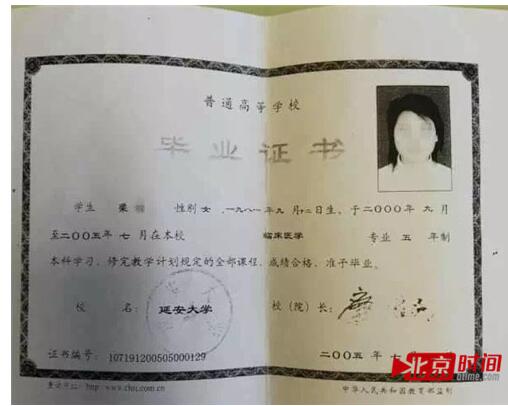 普通高等学校
毕业证书
学生 梁 性别 女 ,一九八一年 九 月十二日生,于二〇〇〇年 九 月
至二〇〇五年 七 月在本校 临床医学 专业 五 年制
本科学习,修完教学计划规定的全部课程,成绩合格,准予毕业。
校 名: 延安大学 校(院)长:
证书编号: 107191200505000129 二〇〇五年 七
北京时间
btime.com
http://www.chsi.com.cn
中华人民共和国教育部监制